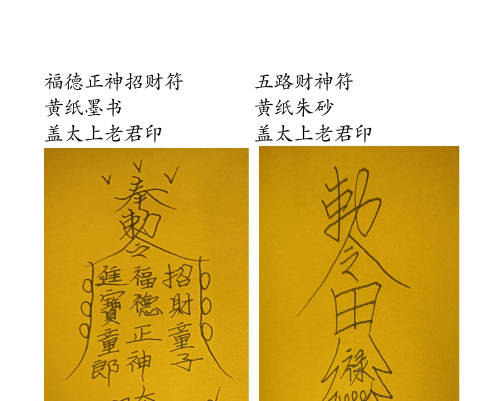 福德正神招财符
黄纸墨书
盖太上老君印
五路财神符
黄纸朱砂
盖太上老君印
奉
勅
令
招財童子
福德正神
進寶童郎
勅
令
田
禄